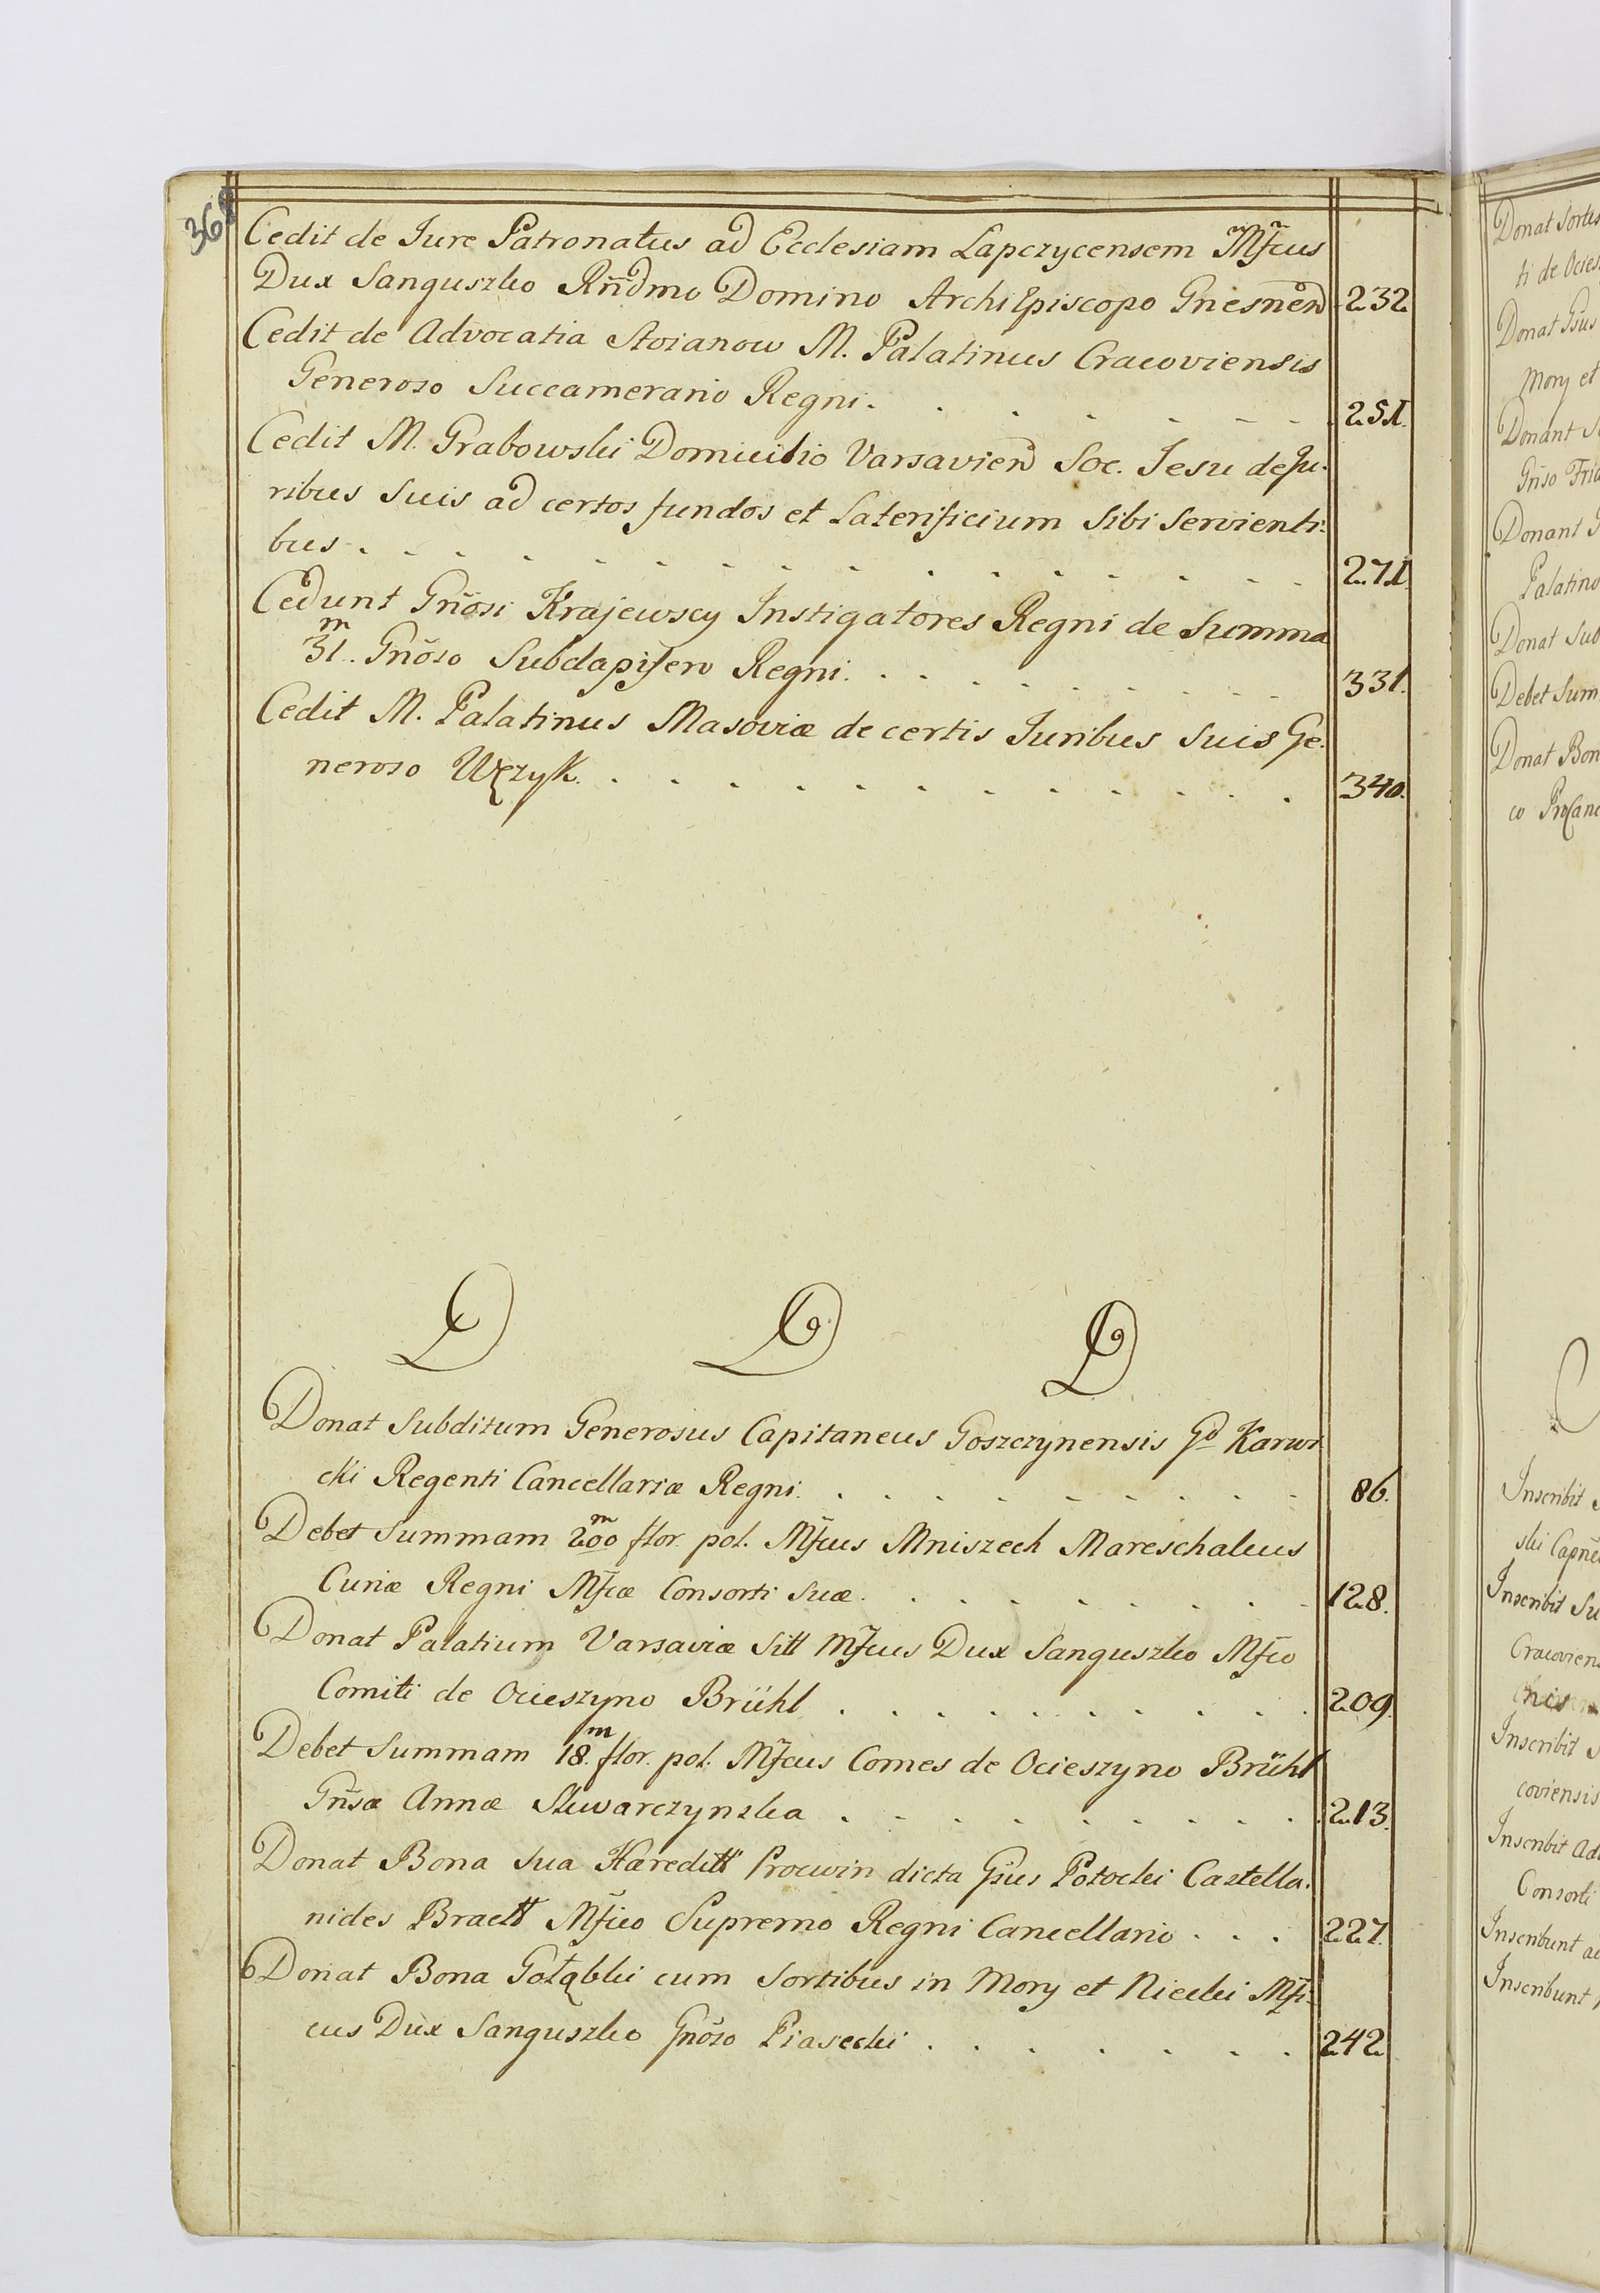 368
Cedit de Iure Patronatus ad Ecclesiam Lapczycensem Mfcus
Dux Sanguszko Rñdmo Domino ArchiEpiscopo Gnesnen 232
Cedit de Advocatia Stoianow M. Palatinus Cracoviensis
Generoso Succamerario Regni. 251.
Cedit M. Grabowski Domicilio Varsavien Soc. Iesu de Ju-
ribus suis ad certos fundos et Laterificium sibi servienti-
bus 271.
Cedunt Gñosi Krajewscy Instigatores Regni de Summa
31.m Gñoso Subdapifero Regni. 331.
Cedit M. Palatinus Masoviæ de certis Iuribus suis Ge-
neroso Wężyk. 340.
D D D
Donat Subditum Generosus Capitaneus Goszczynensis Gd Karwi
cki Regenti Cancellariæ Regni. 86.
Debet Summam 200m flor. pol. Mfcus Mniszech Mareschalcus
Curiæ Regni Mfcæ Consorti suæ. 128.
Donat Palatium Varsaviæ Sitt Mfcus Dux Sanguszko Mfco
Comiti de Ocieszyno Brühl 209.
Debet Summam 18.m flor. pol. Mfcus Comes de Ocieszyno Brühl
Gñsæ Annæ Skwarczynska 213.
Donat Bona sua Hæreditt Procwin dicta Gsus Potocki Castella-
nides Braclt Mfico Supremo Regni Cancellario 227.
Donat Bona Gołąbki cum sortibus in Mory et Niecki Mfi-
cus Dux Sanguszko Gñoso Piasecki 242
Donat
ti de
Donat Gsus
Mory et
Donant
Gñso
Donant
Palatino
Donat Sub
Debet Sum
Donat Bon
co ProCanc
Inscribit
ski
Inscribit Su
Cracovien
Inscribit
coviensis
Inscribit Ad
Consorti
Inscribunt
Inscribunt